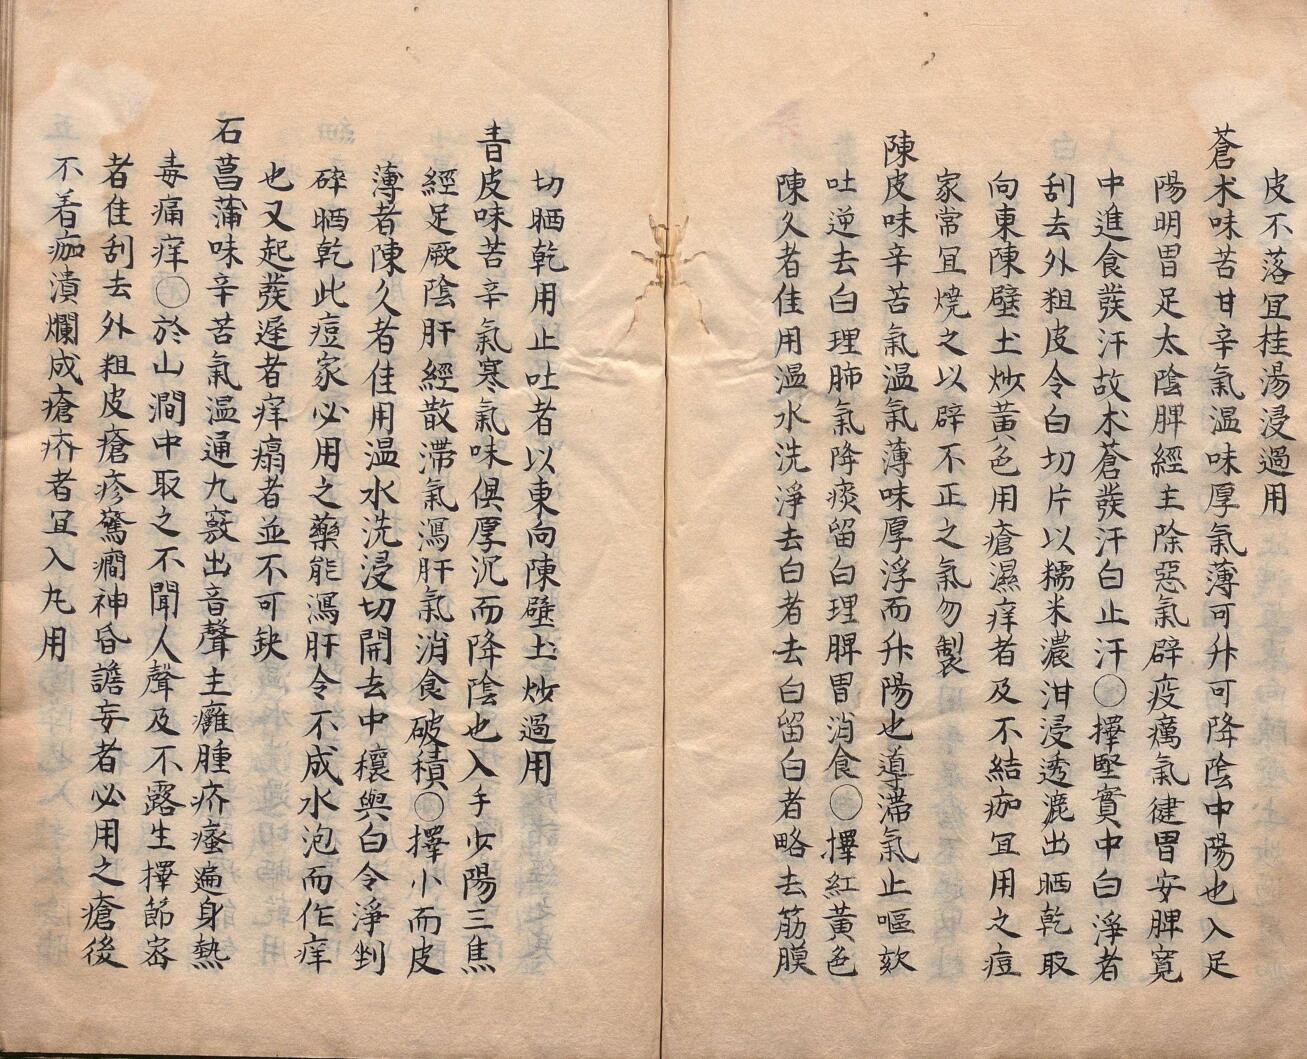 皮不落宜桂湯浸過用
蒼术味苦甘辛氣温味厚氣薄可升可降陰中陽也入足
陽明胃足太陰脾經主除惡氣辟疫癘氣健胃安脾寛
中進食發汗故术蒼發汗白止汗〇擇堅實中白淨者
刮去外粗皮令白切片以糯米濃泔浸透漉出晒乾取
向東陳壁土炒黃色用瘡濕痒者及不結痂宜用之痘
家常宜燒之以辟不正之氣勿製
陳皮味辛苦氣温氣薄味厚浮而升陽也導滞氣止嘔欬
吐逆去白理肺氣降痰留白理脾胃消食〇擇紅黃色
陳久者佳用温水洗淨去白者去白留白者略去筋膜
切晒乾用止吐者以東向陳壁土炒過用
青皮味苦辛氣寒氣味俱厚沉而降陰也入手少陽三焦
經足厥陰肝經散滯氣瀉肝氣消食破積〇擇小而皮
薄者陳久者佳用温水洗浸切開去中穰與白令淨剉
碎晒乾此痘家必用之藥能瀉肝令不成水泡而作痒
也又起發遲者痒瘍者並不可缺
石菖蒲味辛苦氣温通九竅出音聲主癰腫疥瘙遍身熱
毒痛痒〇於山澗中取之不聞人聲及不露生擇節宻
者佳刮去外粗皮瘡疹驚癇神昏譫妄者必用之瘡後
不着痂潰爛成瘡疥者宜入丸用